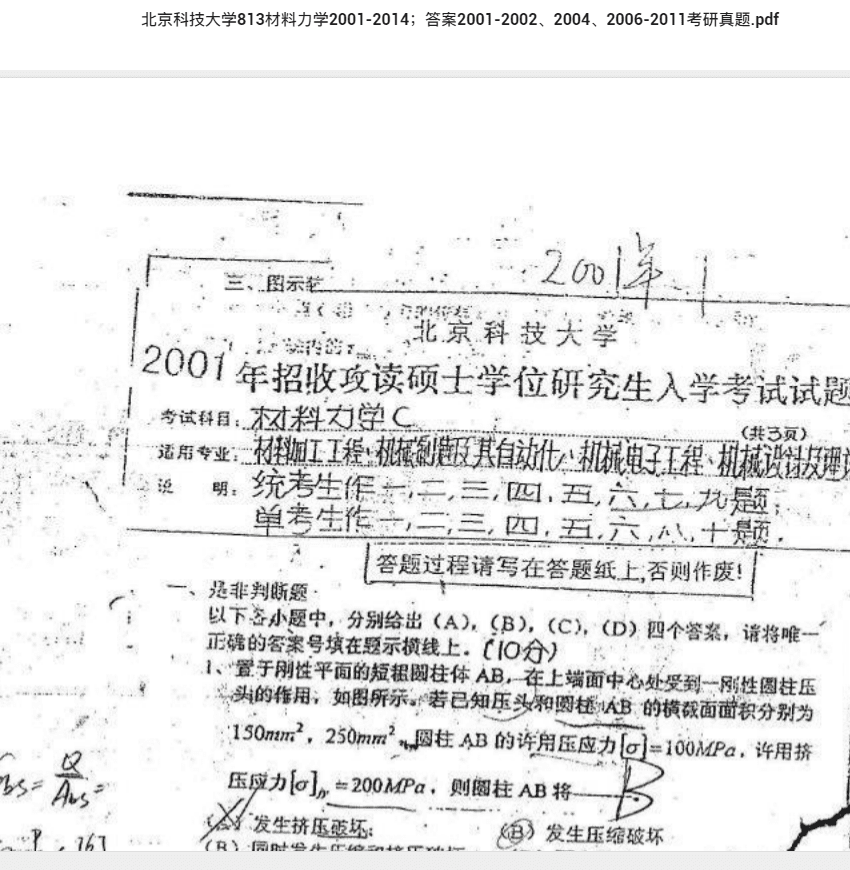 北京科技大学813材料力学2001-2014；答案2001-2002、2004、2006-2011考研真题.pdf
2001年
三、图示
北京科技大学
2001年招收攻读硕士学位研究生入学考试试题
考试科目：材料力学C
(共3页)
适用专业：材料加工工程、机械制造及其自动化、机械电子工程、机械设计及理论
说 明：统考生作一,二,三,四,五,六,七,九题;
单考生作一,二,三,四,五,六,八,十题.
答题过程请写在答题纸上,否则作废!
一、是非判断题
以下各小题中，分别给出（A），（B），（C），（D）四个答案，请将唯一
正确的答案号填在题示横线上。(10分)
1、置于刚性平面的短粗圆柱体AB，在上端面中心处受到一刚性圆柱压
头的作用，如图所示。若已知压头和圆柱AB的横截面面积分别为
150mm²，250mm²，圆柱AB的许用压应力[σ]=100MPa，许用挤
压应力[σ]=200MPa，则圆柱AB将 B
(A) 发生挤压破坏； (B) 发生压缩破坏